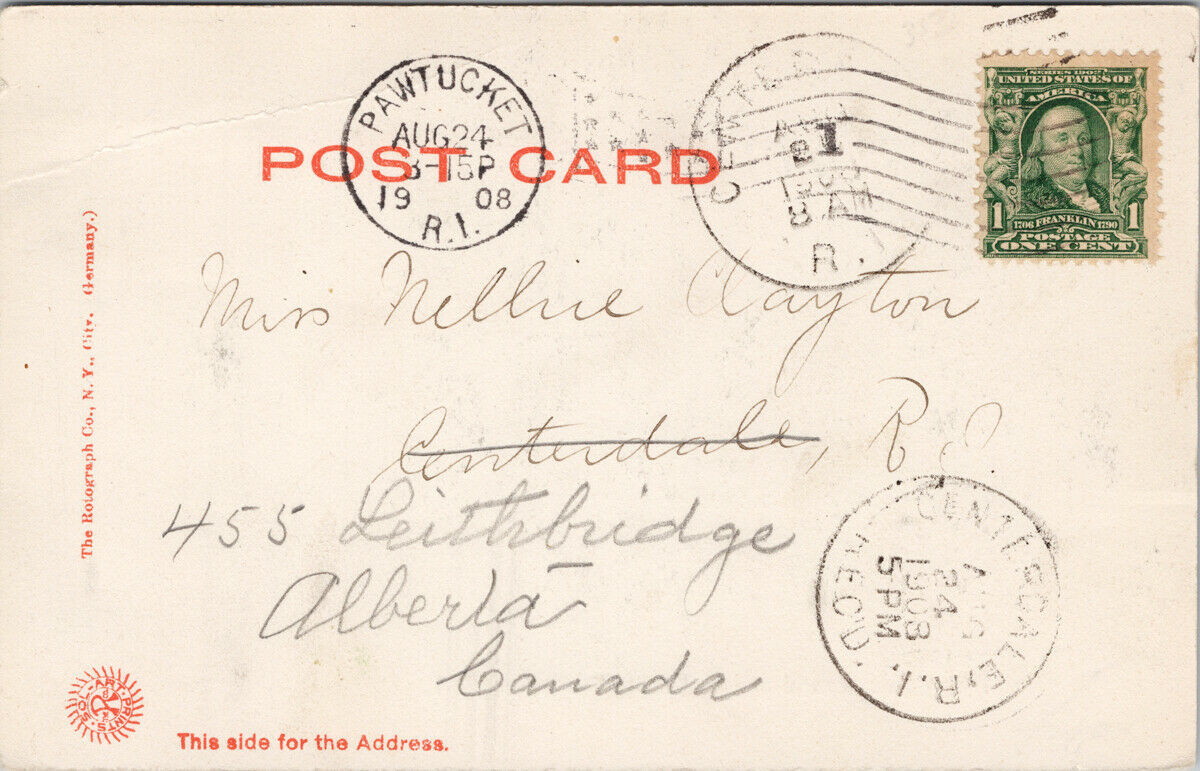 POST CARD
PAWTUCKET
AUG 24
3-15P
19 08
R.I.
1908
8 AM
R.
SERIES 1902
UNITED STATES OF
AMERICA
1 1
1706 FRANKLIN 1790
POSTAGE
ONE CENT
Miss Nellie Clayton
Centerdale, R I
455 Leithbridge
Alberta
Canada
CENTERDALE, R.I.
AUG
24
1908
5 PM
REC'D.
The Rotograph Co., N. Y., City. (Germany.)
SOL-ART PRINTS
This side for the Address.